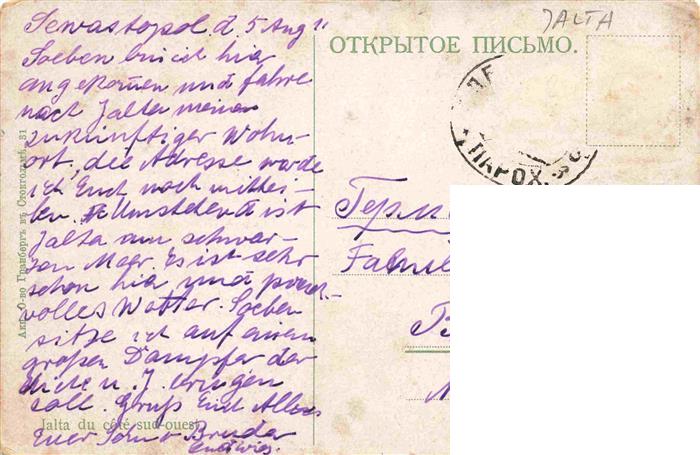 Sewastopol d. 5 Aug 11
Soeben bin ich hier
angekommen und fahre
nach Jalta meinen
zukünftiger Wohn-
ort, die Adresse werde
ich Euch noch mittei-
len. Umstehend ist
Jalta am schwar-
zen Meer. Es ist sehr
schön hier und pracht-
volles Wetter. Soeben
sitze ich auf einen
großen Dampfer der
mich n. J. bringen
soll. Gruß Euch Allen
Euer Sohn u. Bruder
Ludwig.
Jalta du côté sud-ouest
Акц. О-во Гранбергъ въ Стокгольмѣ 31
JALTA
ОТКРЫТОЕ ПИСЬМО.
ПАРОХ.
Герм
Famil